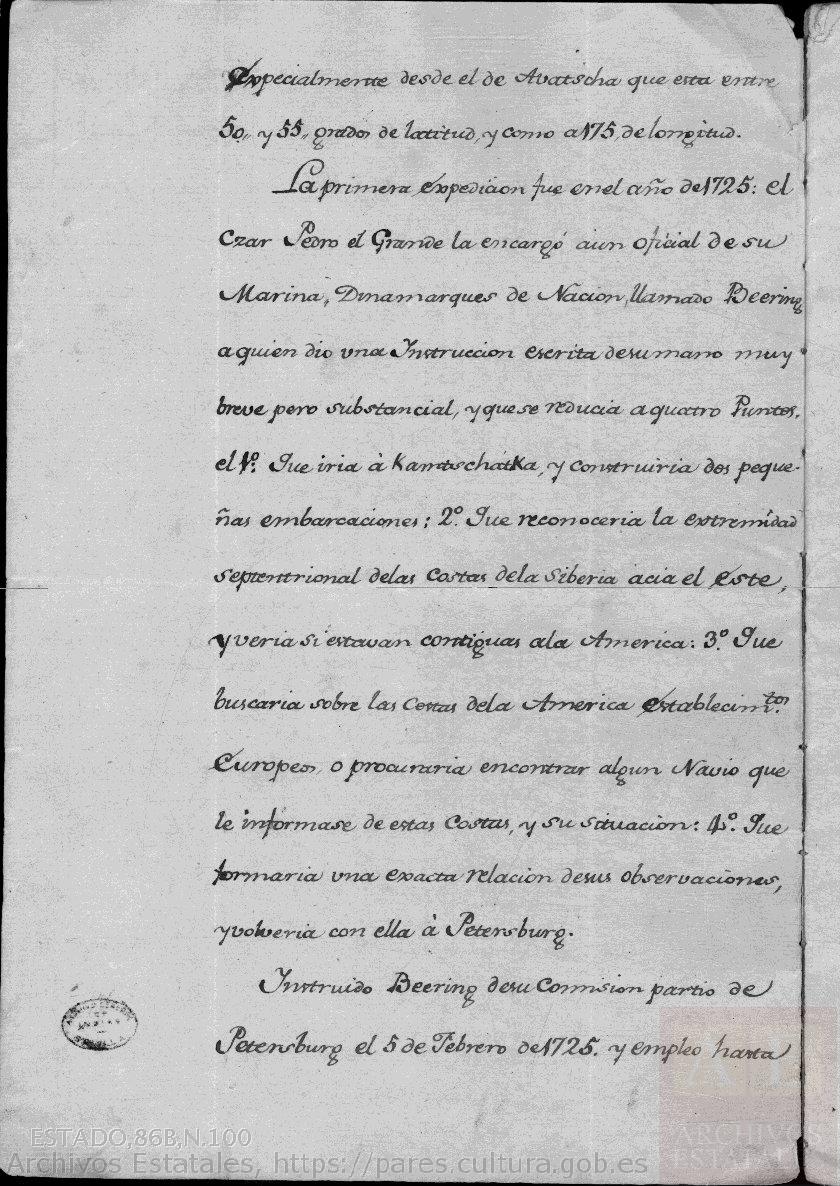 Expecialmente desde el de Avatscha que esta entre
50,, y 55,, grados de latitud, y como a 175, de longitud.
La primera Expedicion fue en el año de 1725: el
Czar Pedro el Grande la encargó aun oficial de su
Marina, Dinamarques de Nacion, llamado Beering
a quien dio una Instruccion escrita desumano muy
breve pero substancial, y quese reducia a quatro Puntos.
el 1º. Que iria à Kamtschatka, y construiria dos peque-
ñas embarcaciones; 2º. Que reconoceria la extremidad
septentrional delas Costas dela Siberia acia el Este,
y veria si estavan contiguas ala America: 3º. Que
buscaria sobre las Costas dela America establecimtos.
Europeos, o procuraria encontrar algun Navio que
le informase de estas Costas, y su situacion: 4º. Que
formaria una exacta relacion desus observaciones,
y volveria con ella à Petersburg.
Instruido Beering desu Comision partio de
Petersburg el 5 de Febrero de 1725. y empleo hasta
ARCHIVO GENERAL
DE
INDIAS
SEVILLA
ESTADO,86B,N.100
Archivos Estatales, https://pares.cultura.gob.es
ARCHIVOS
ESTATALES